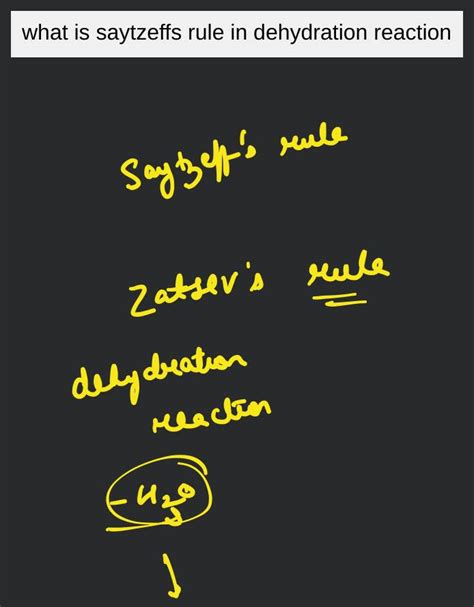 what is saytzeffs rule in dehydration reaction
Saytzeff's rule
Zatsev's rule
dehydration
reaction
- H2O